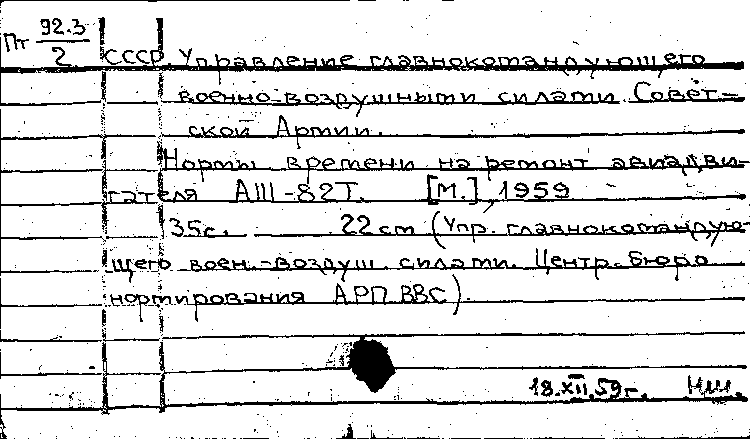 Пт 92.3
2
СССР. Управление главнокомандующего
военно-воздушными силами Совет-
ской Армии.
Нормы времени на ремонт авиадви-
гателя АШ-82Т. [М.], 1959
35с. 22 см (Упр. главнокомандую-
щего воен.-воздуш. силами. Центр. бюро
нормирования АРП ВВС).
18.XII.59г. НШ.